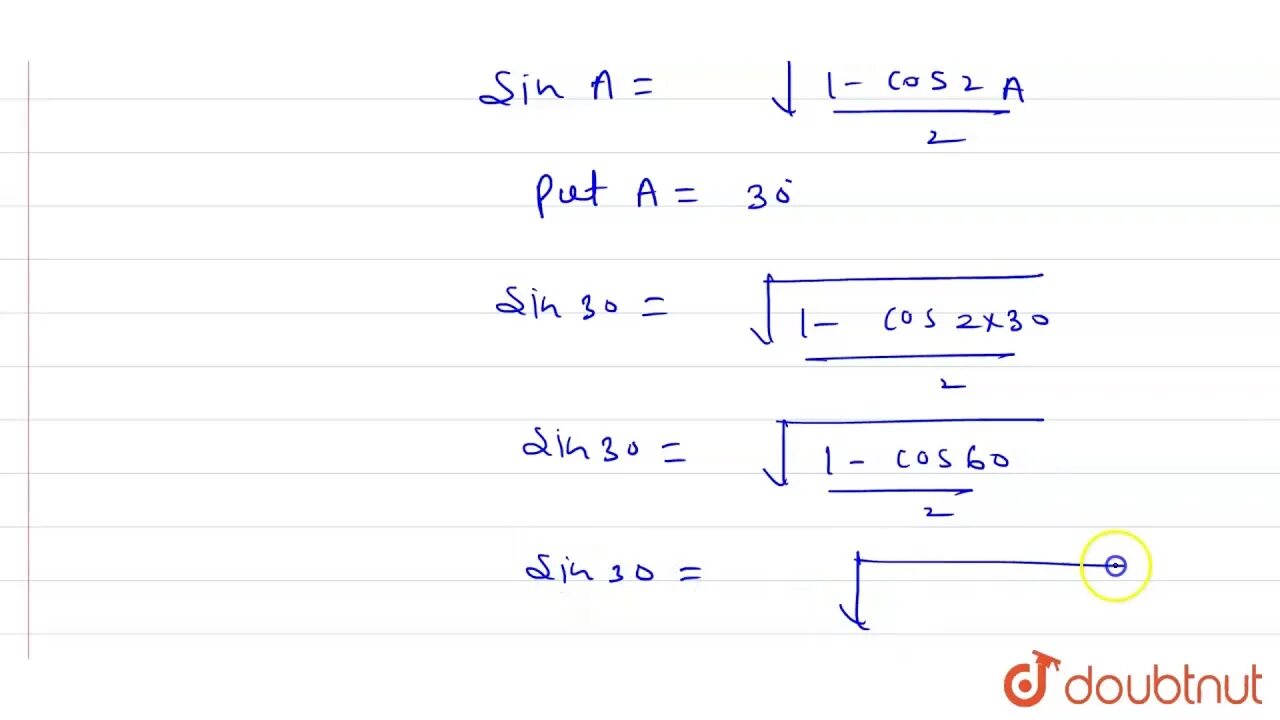 Sin A = √ 1 - cos 2 A / 2
Put A = 30°
Sin 30 = √ 1 - cos 2×30 / 2
Sin 30 = √ 1 - cos 60 / 2
Sin 30 = √
doubtnut